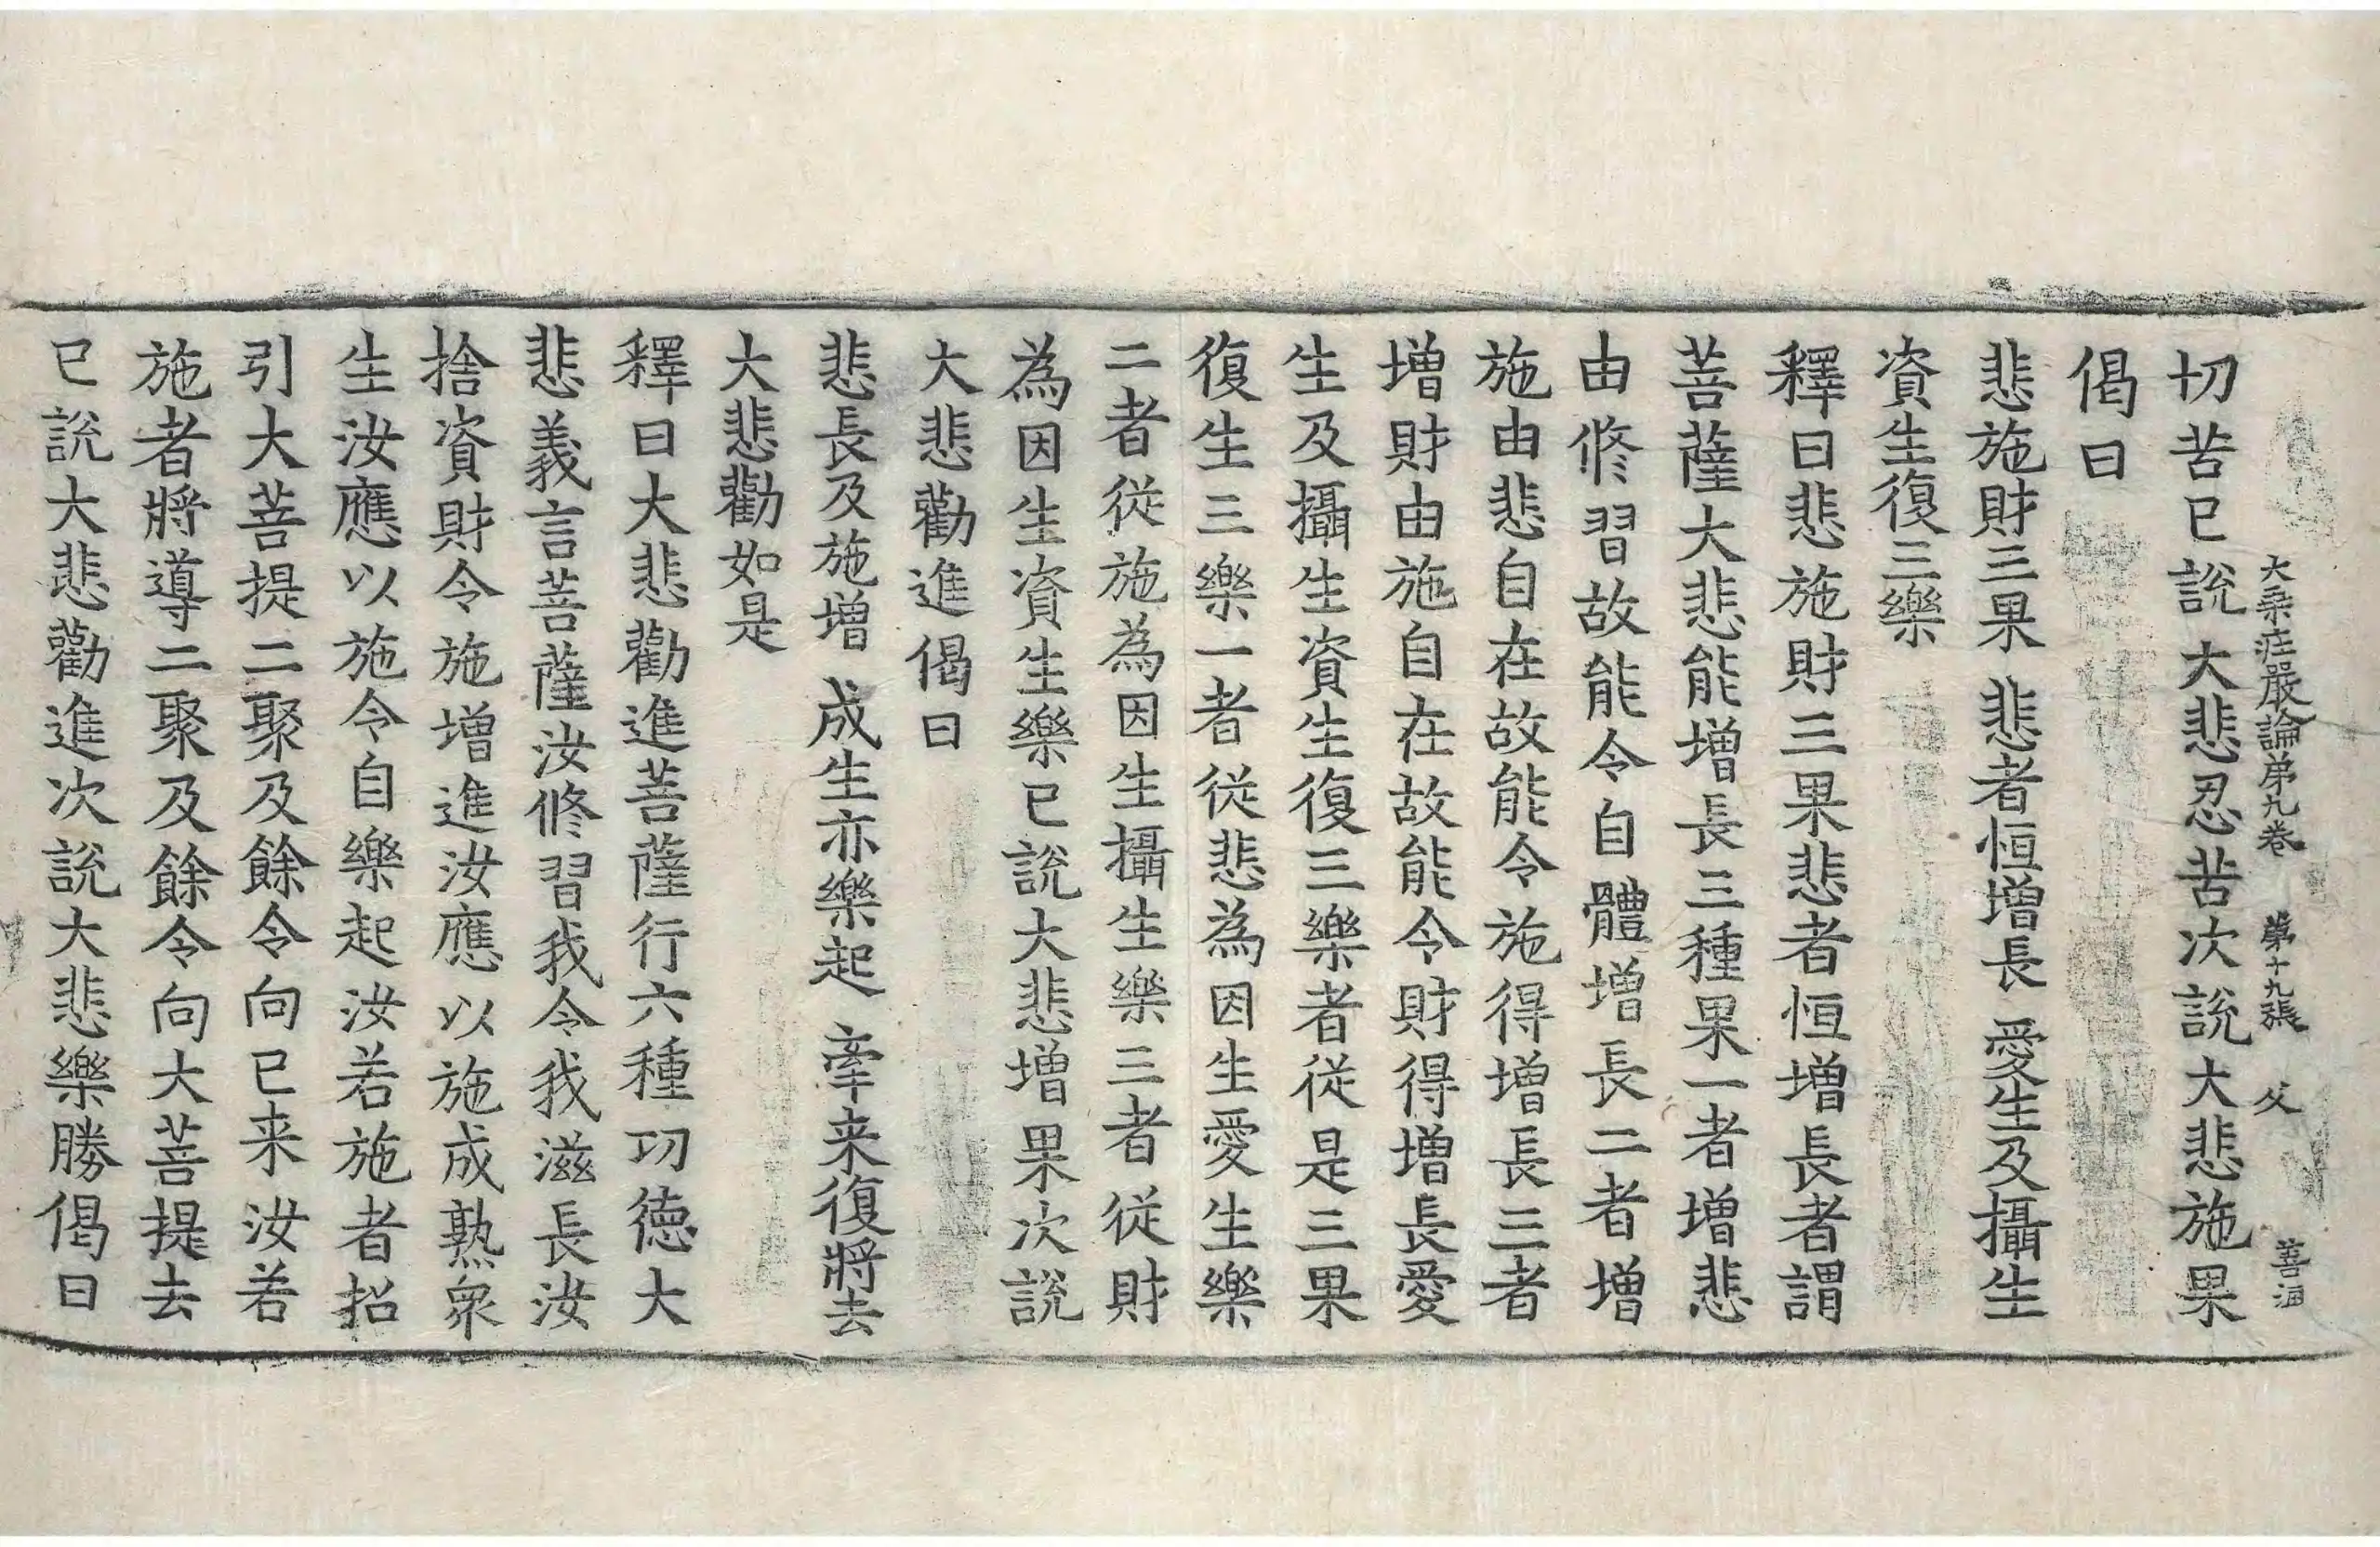 大乘莊嚴論第九卷 第十九張 父 善海
切苦已說大悲忍苦次說大悲施果
偈曰
悲施財三果 悲者恒增長 愛生及攝生
資生復三樂
釋曰悲施財三果悲者恒增長者謂
菩薩大悲能增長三種果一者增悲
由修習故能令自體增長二者增
施由悲自在故能令施得增長三者
增財由施自在故能令財得增長愛
生及攝生資生復三樂者從是三果
復生三樂一者從悲為因生愛生樂
二者從施為因生攝生樂三者從財
為因生資生樂已說大悲增果次說
大悲勸進偈曰
悲長及施增 成生亦樂起 牽来復將去
大悲勸如是
釋曰大悲勸進菩薩行六種功德大
悲義言菩薩汝修習我令我滋長汝
捨資財令施增進汝應以施成熟衆
生汝應以施令自樂起汝若施者招
引大菩提二聚及餘令向已来汝若
施者將導二聚及餘令向大菩提去
已說大悲勸進次說大悲樂勝偈曰